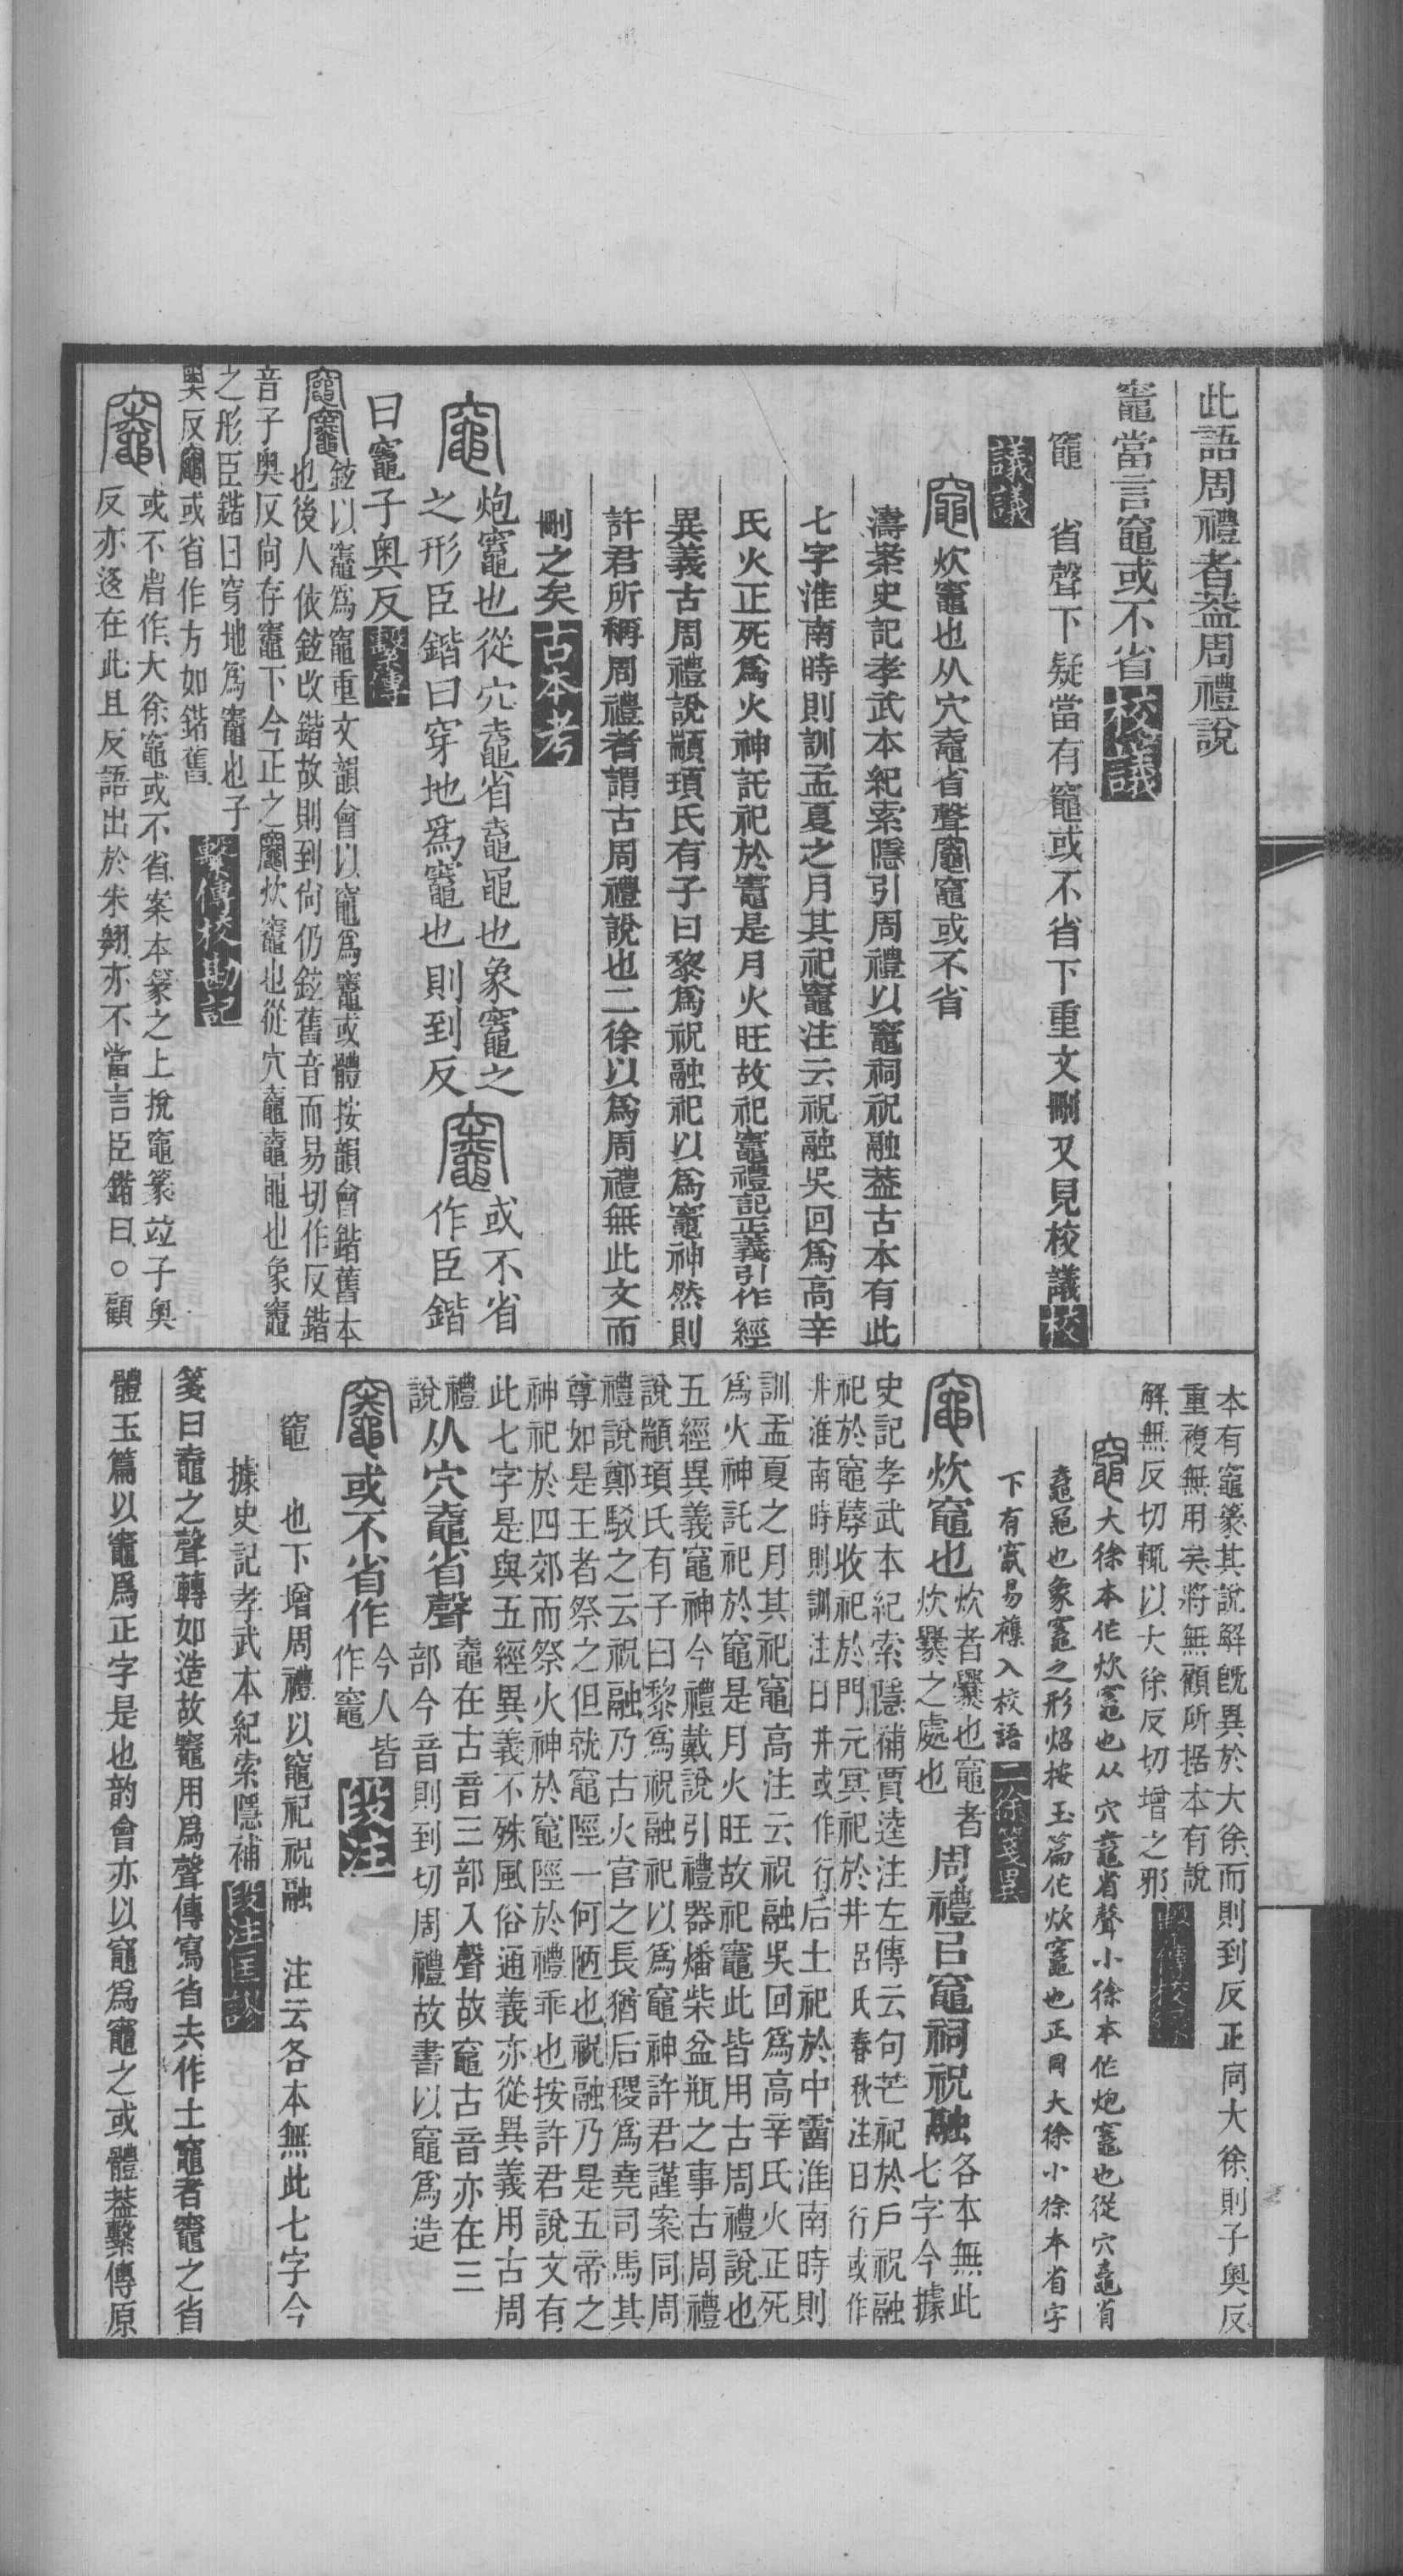 此語周禮者葢周禮說
竈當言竈或不省校議
竈　省聲下疑當有竈或不省下重文刪又見校議校
議議
炊竈也从穴鼀省聲竈或不省
濤案史記孝武本紀索隱引周禮以竈祠祝融葢古本有此
七字淮南時則訓孟夏之月其祀竈注云祝融吳回爲高辛
氏火正死爲火神託祀於竈是月火旺故祀竈禮記正義引作經
異義古周禮說顓頊氏有子曰黎爲祝融祀以爲竈神然則
許君所稱周禮者謂古周禮說也二徐以爲周禮無此文而
刪之矣古本考
炮竈也從穴鼀省鼀黽也象竈之
之形臣鍇曰穿地爲竈也則到反
或不省
作臣鍇
曰竈子奥反繫傳
鉉以竈爲竈重文韻會以竈爲竈或體按韻會鍇舊本
也後人依鉉改鍇故則到尚仍鉉舊音而易切作反鍇
音子奥反尚存竈下今正之炊竈也從穴鼀鼀黽也象竈
之形臣鍇曰穿地爲竈也子
奥反或省作方如鍇舊
繫傳校勘記
或不省作大徐竈或不省案本篆之上挩竈篆竝子奥
反亦逐在此且反語出於朱翱亦不當言臣鍇曰○顧
本有竈篆其說解旣異於大徐而則到反正同大徐則子奥反
重複無用矣將無顧所据本有說
解無反切輒以大徐反切增之邪
大徐本作炊竈也从穴鼀省聲小徐本作炮竈也從穴鼀省
鼀黽也象竈之形炤按玉篇作炊竈也正同大徐小徐本省字
下有竅易襍入校語二徐箋異
炊竈也
炊者爨也竈者
炊爨之處也
周禮㠯竈祠祝融
各本無此
七字今據
史記孝武本紀索隱補賈逵注左傳云句芒祀於戶祝融
祀於竈蓐收祀於門元冥祀於井呂氏春秋注日行或作
井淮南時則訓注日井或作行后土祀於中霤淮南時則
訓孟夏之月其祀竈高注云祝融吳回爲高辛氏火正死
爲火神託祀於竈是月火旺故祀竈此皆用古周禮說也
五經異義竈神今禮戴說引禮器燔柴盆瓶之事古周禮
說顓頊氏有子曰黎爲祝融祀以爲竈神許君謹案同周
禮說鄭駁之云祝融乃古火官之長猶后稷爲堯司馬其
尊如是王者祭之但就竈陘一何陋也祝融乃是五帝之
神祀於四郊而祭火神於竈陘於禮乖也按許君說文有
此七字是與五經異義不殊風俗通義亦從異義用古周
禮
說
从穴鼀省聲
鼀在古音三部入聲故竈古音亦在三
部今音則到切周禮故書以竈爲造
或不省作
今人皆
作竈
段注
竈　也下增周禮以竈祀祝融　注云各本無此七字今
據史記孝武本紀索隱補段注匡謬
箋曰鼀之聲轉如造故竈用爲聲傳寫省去作土竈者竈之省
體玉篇以竈爲正字是也韵會亦以竈爲竈之或體葢繫傳原